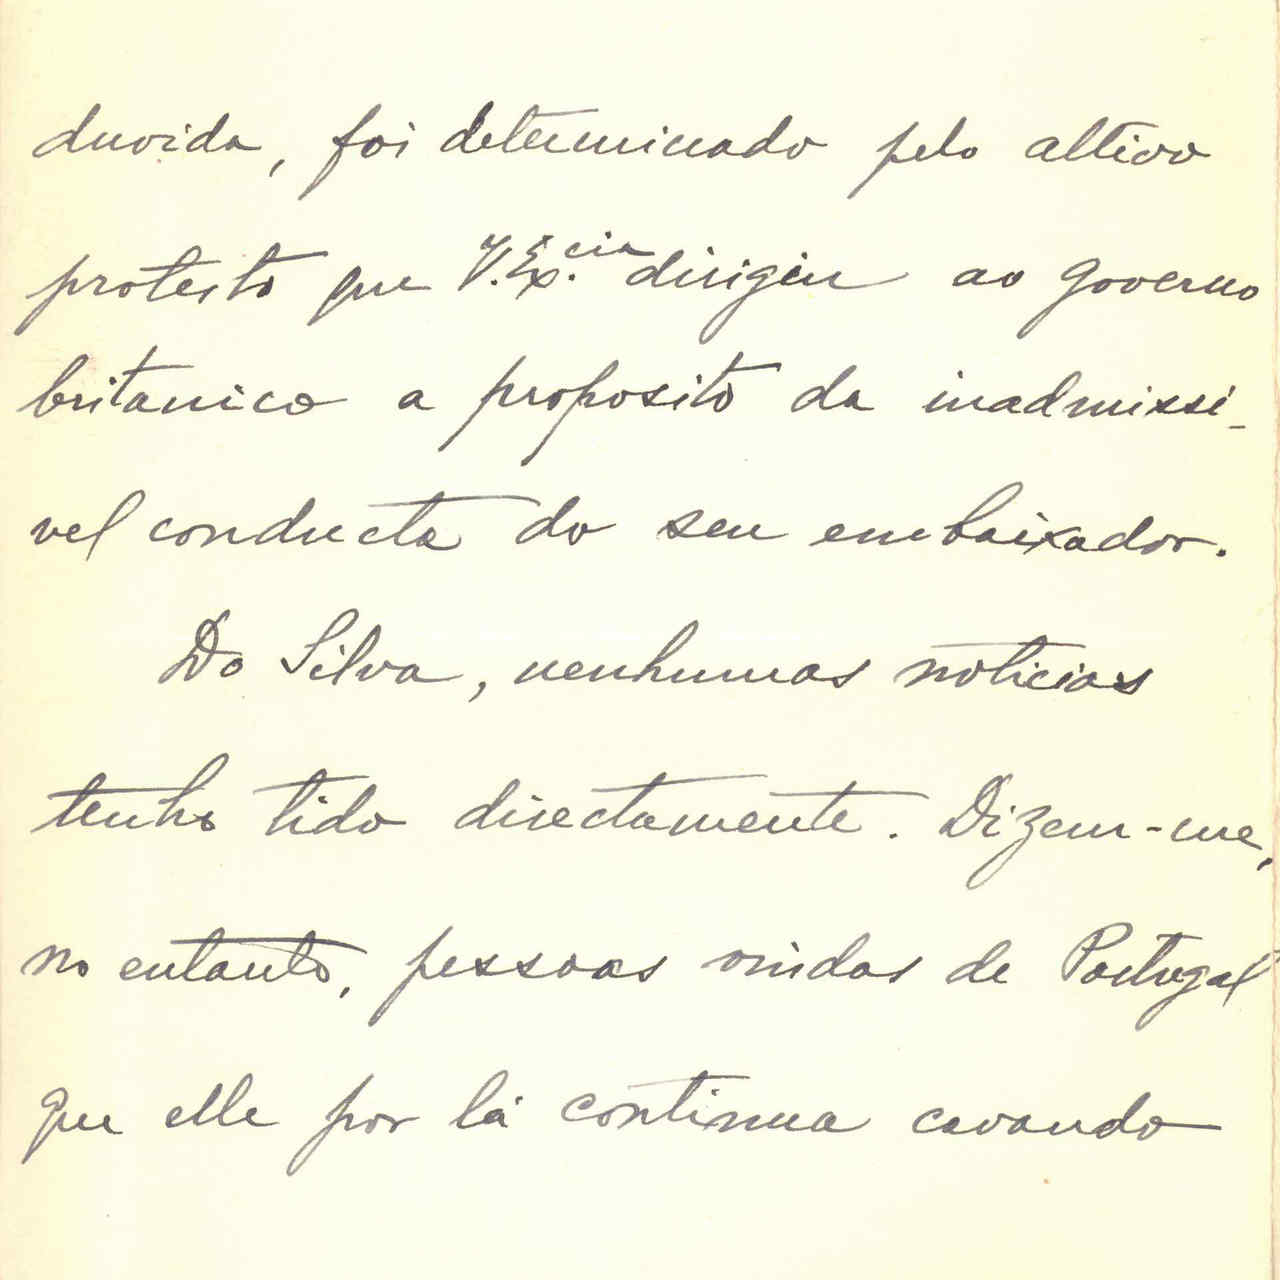 duvida, foi determinado pelo altivo
protesto que V. Ex.cia dirigiu ao governo
britanico a proposito da inadmissi-
vel conducta do seu embaixador.
Do Silva, nenhumas noticias
tenho tido directamente. Dizem-me,
no entanto, pessoas vindas de Portugal
que elle por lá continua cavando